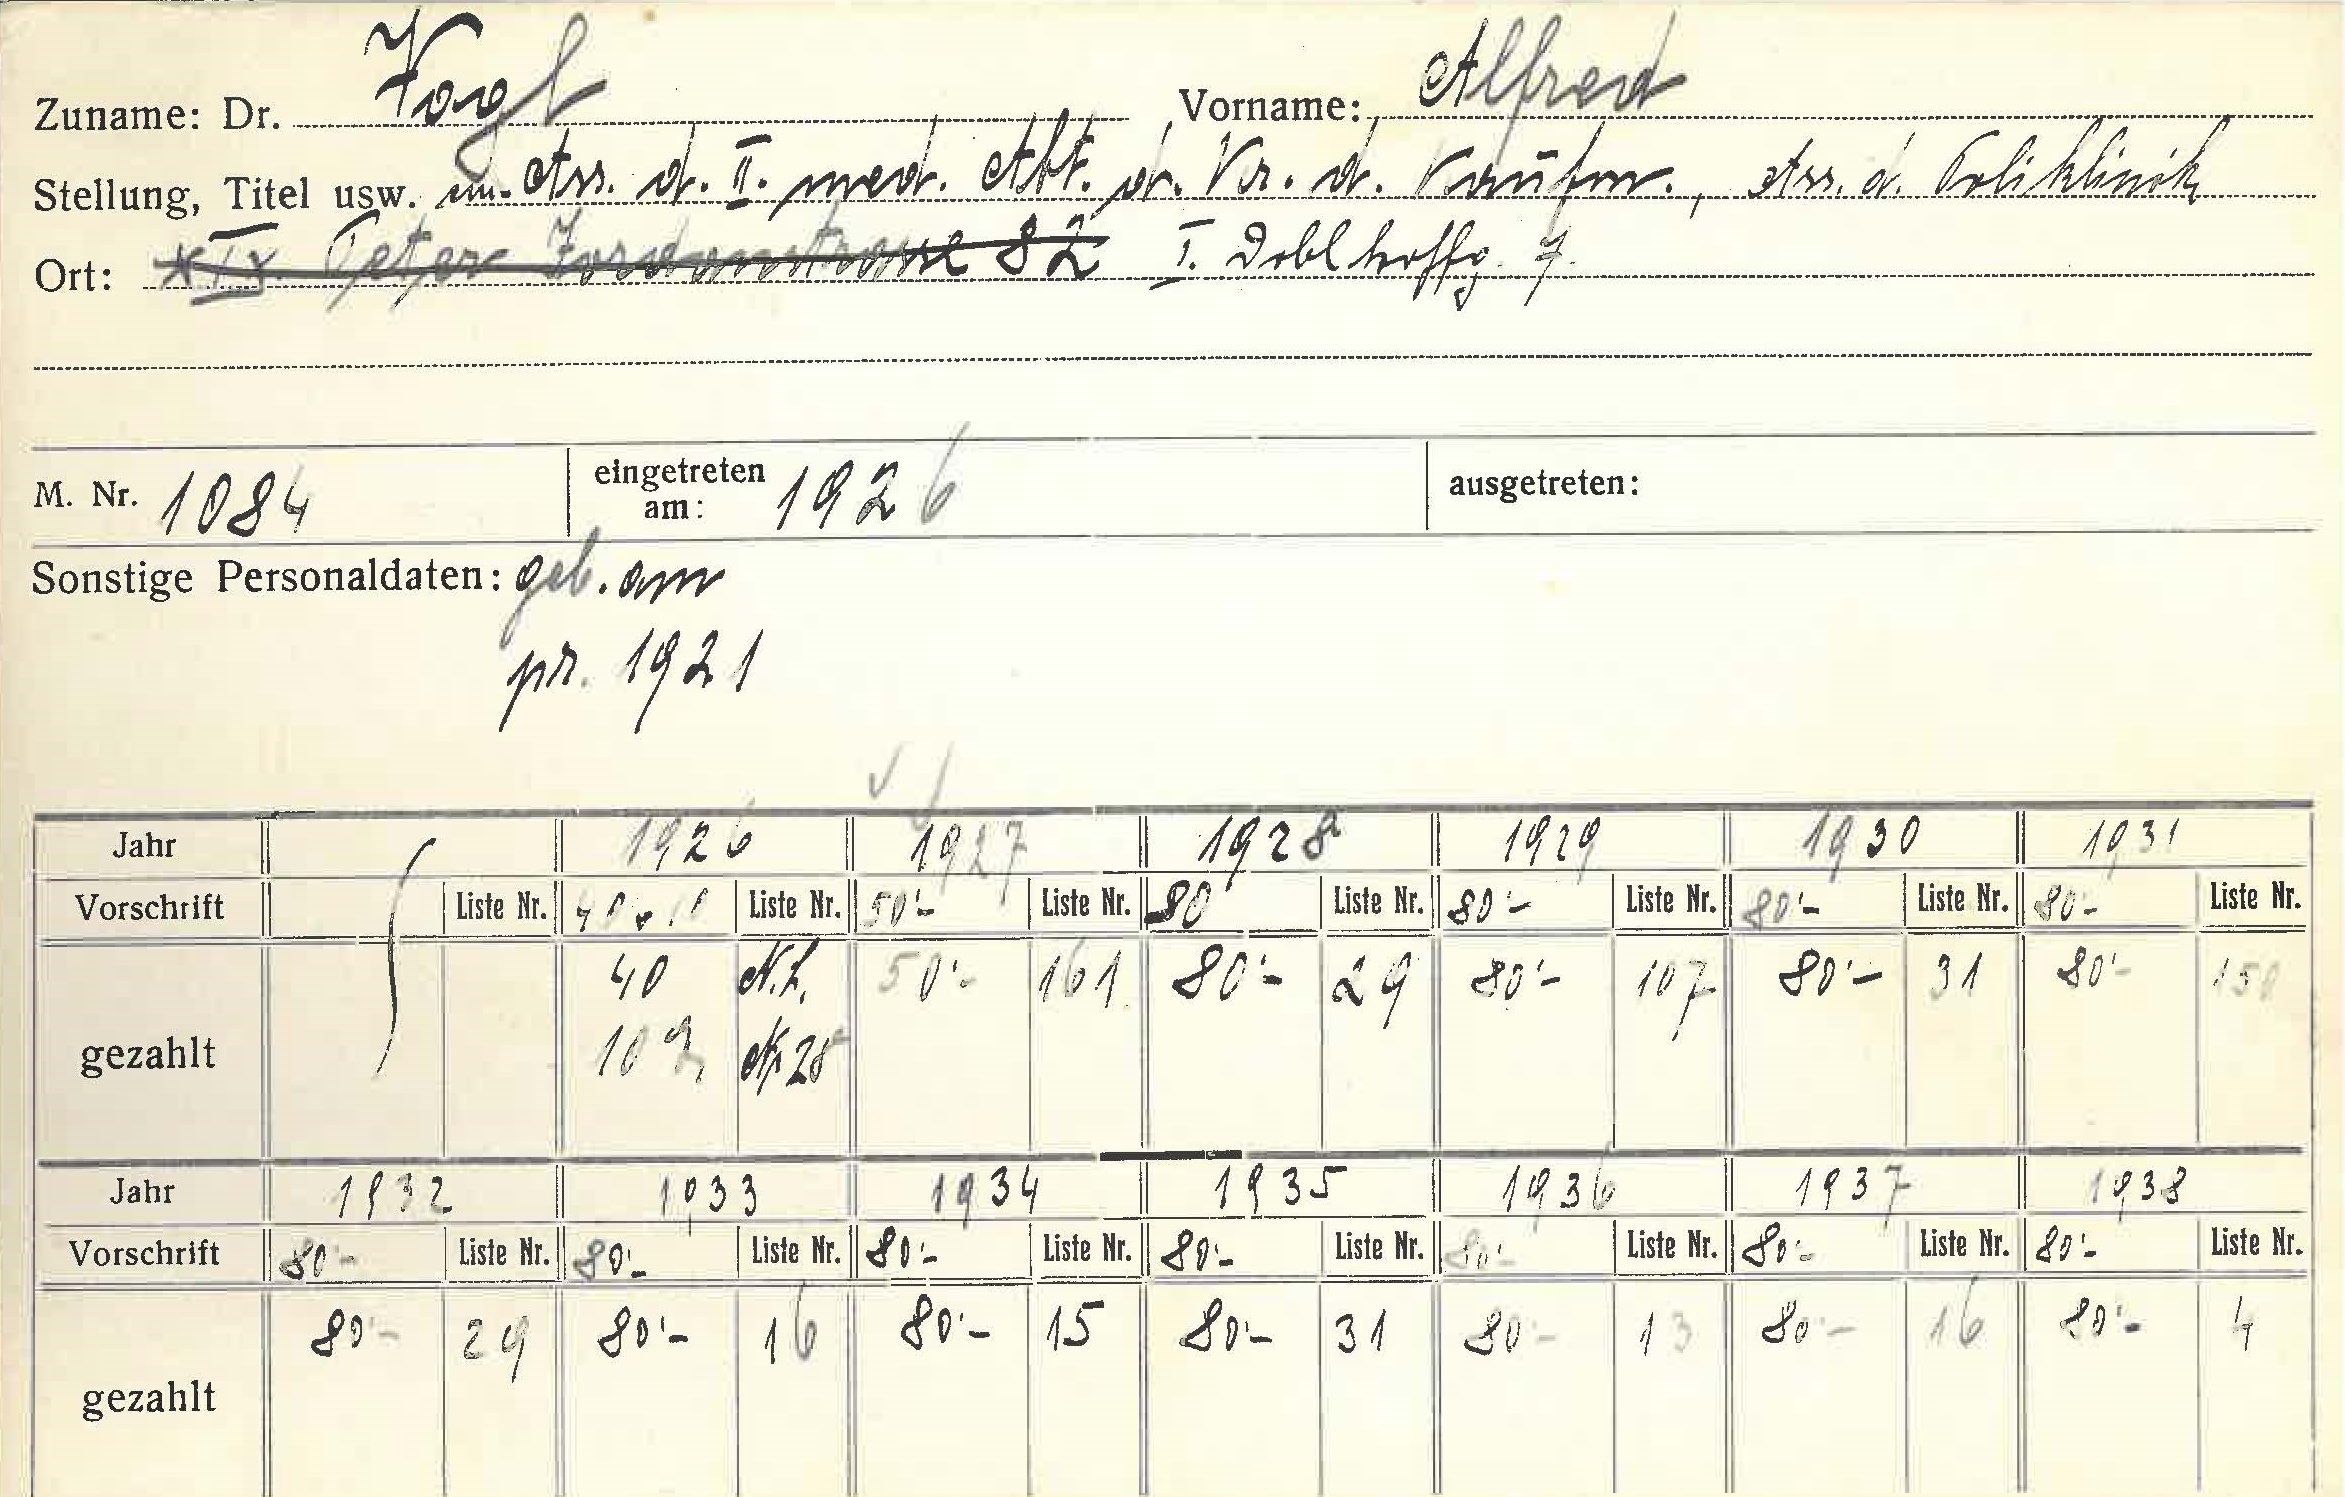 Zuname: Dr. Vogl Vorname: Alfred
Stellung, Titel usw. Ass. d. II. med. Abt. d. Kr. d. Kaufm., Ass. d. Poliklinik
Ort: XIX. Peter Jordanstrasse 82 I. Doblhoffg. 7.
M. Nr. 1084 eingetreten am: 1926 ausgetreten:
Sonstige Personaldaten: geb. am
pr. 1921
Jahr 1926 1927 1928 1929 1930 1931
Vorschrift Liste Nr. Liste Nr. 50'- Liste Nr. 80 Liste Nr. 80'- Liste Nr. 80'- Liste Nr. 80'- Liste Nr.
gezahlt 40 N.L. 50'- 161 80'- 29 80'- 107 80'- 31 80'- 150
10
Jahr 1932 1933 1934 1935 1936 1937 1938
Vorschrift 80'- Liste Nr. 80'- Liste Nr. 80'- Liste Nr. 80'- Liste Nr. 80'- Liste Nr. 80'- Liste Nr. 80'- Liste Nr.
gezahlt 80'- 29 80'- 16 80'- 15 80'- 31 80'- 13 80'- 16 80'- 4